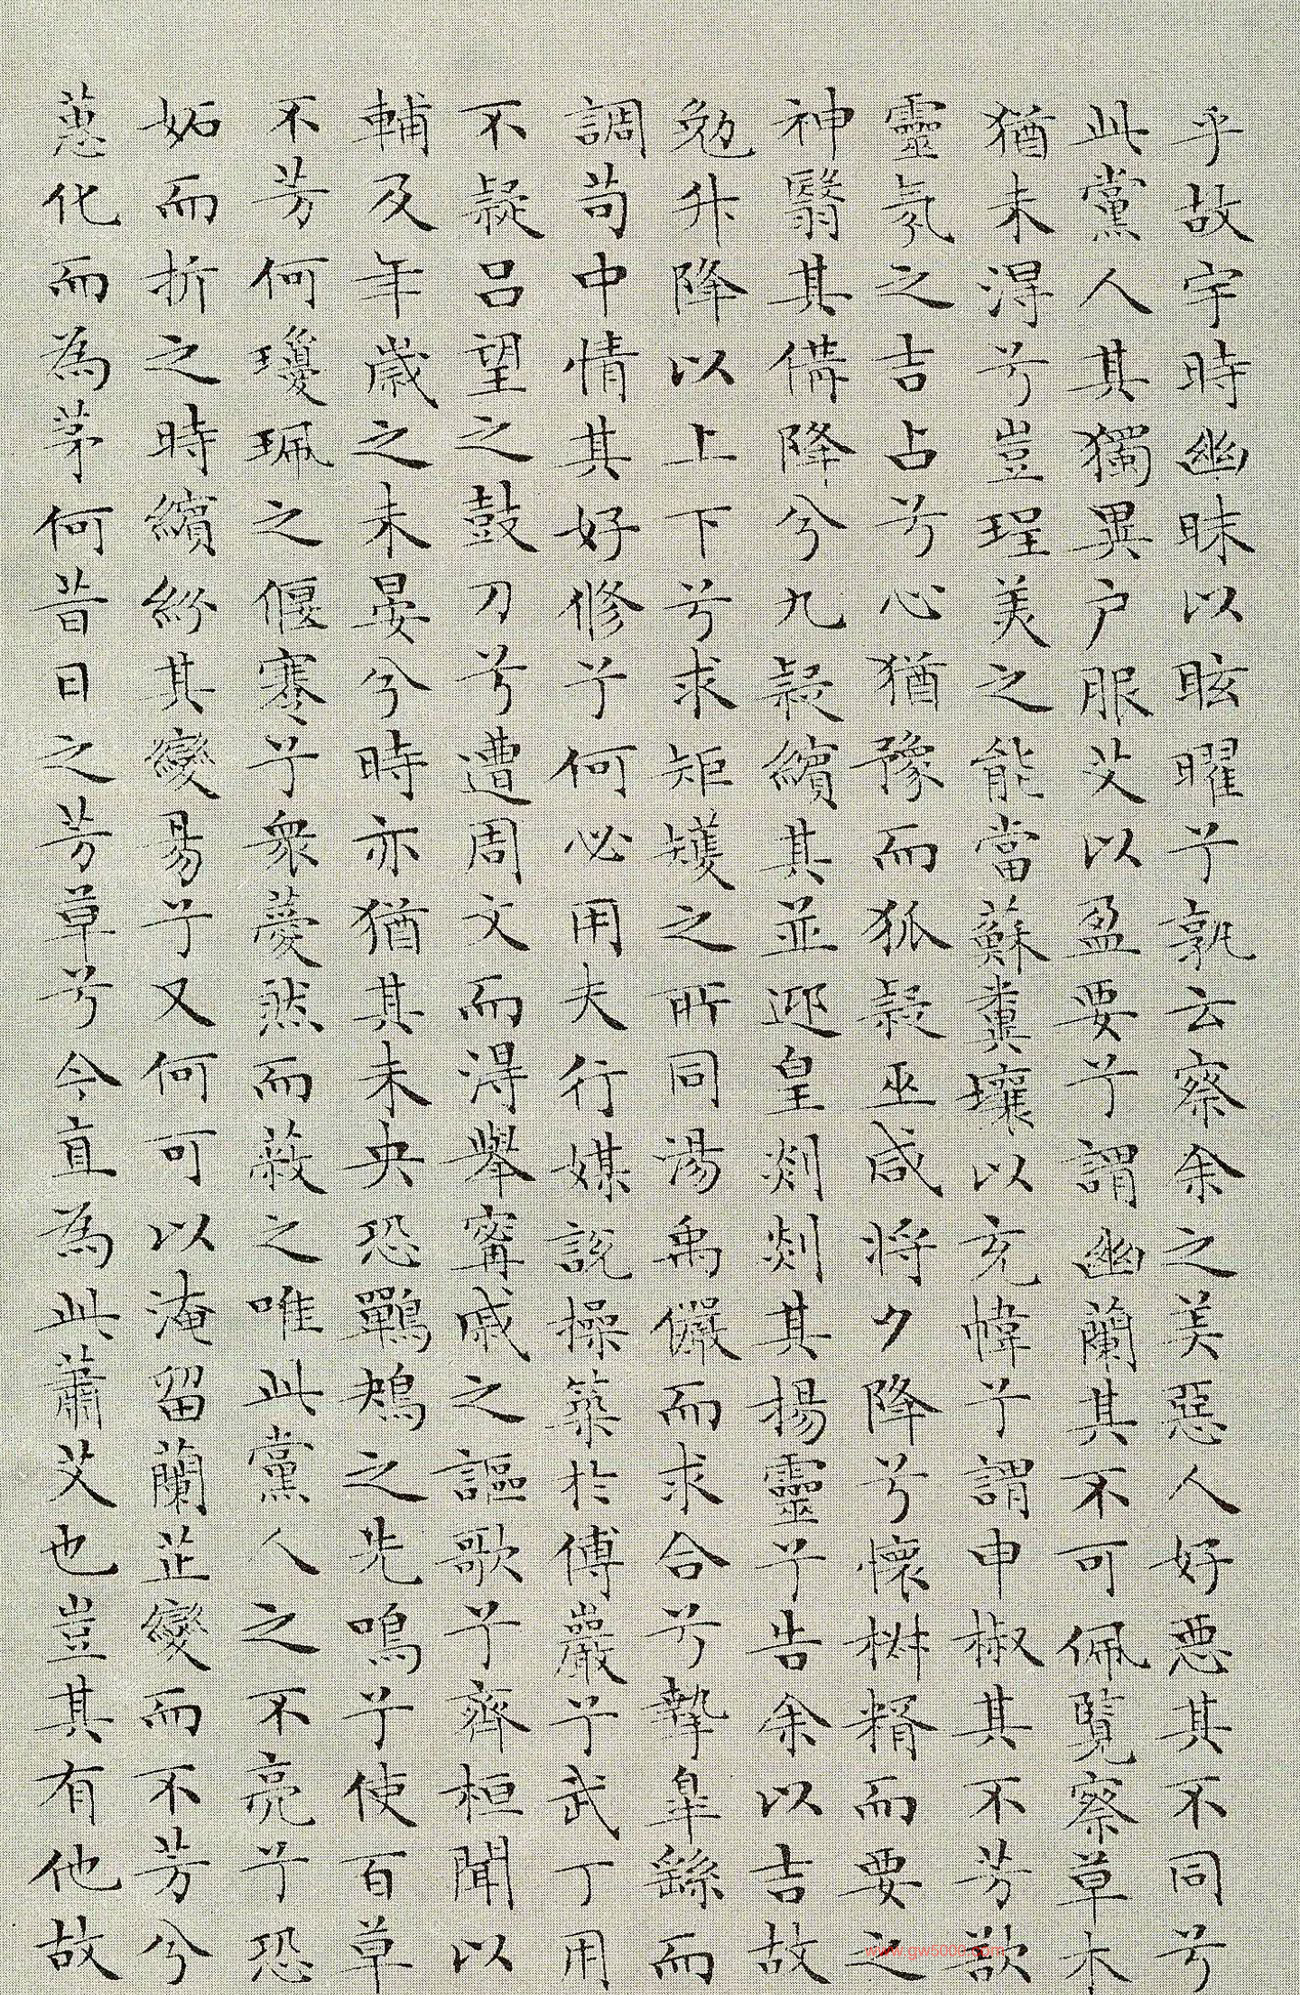 乎故宇時幽昧以眩曜兮孰云察余之美惡人好惡其不同兮
此黨人其獨異户服艾以盈要兮謂幽蘭其不可佩覽察草木
猶未得兮豈珵美之能當蘇糞壤以充幃兮謂申椒其不芳欲
靈氛之吉占兮心猶豫而狐疑巫咸將夕降兮懷椒糈而要之
神翳其備降兮九疑繽其並迎皇剡剡其揚靈兮告余以吉故
勉升降以上下兮求矩矱之所同湯禹儼而求合兮摯皐繇而
調苟中情其好修兮何必用夫行媒說操築於傅巖兮武丁用
不疑呂望之鼓刀兮遭周文而得舉甯戚之謳歌兮齊桓聞以
輔及年歲之未晏兮時亦猶其未央恐鷤鴂之先鳴兮使百草
不芳何瓊珮之偃蹇兮衆薆然而蔽之唯此黨人之不亮兮恐
妬而折之時繽紛其變易兮又何可以淹留蘭芷變而不芳兮
蕙化而為茅何昔日之芳草兮今直為此蕭艾也豈其有他故
www.gw5000.com